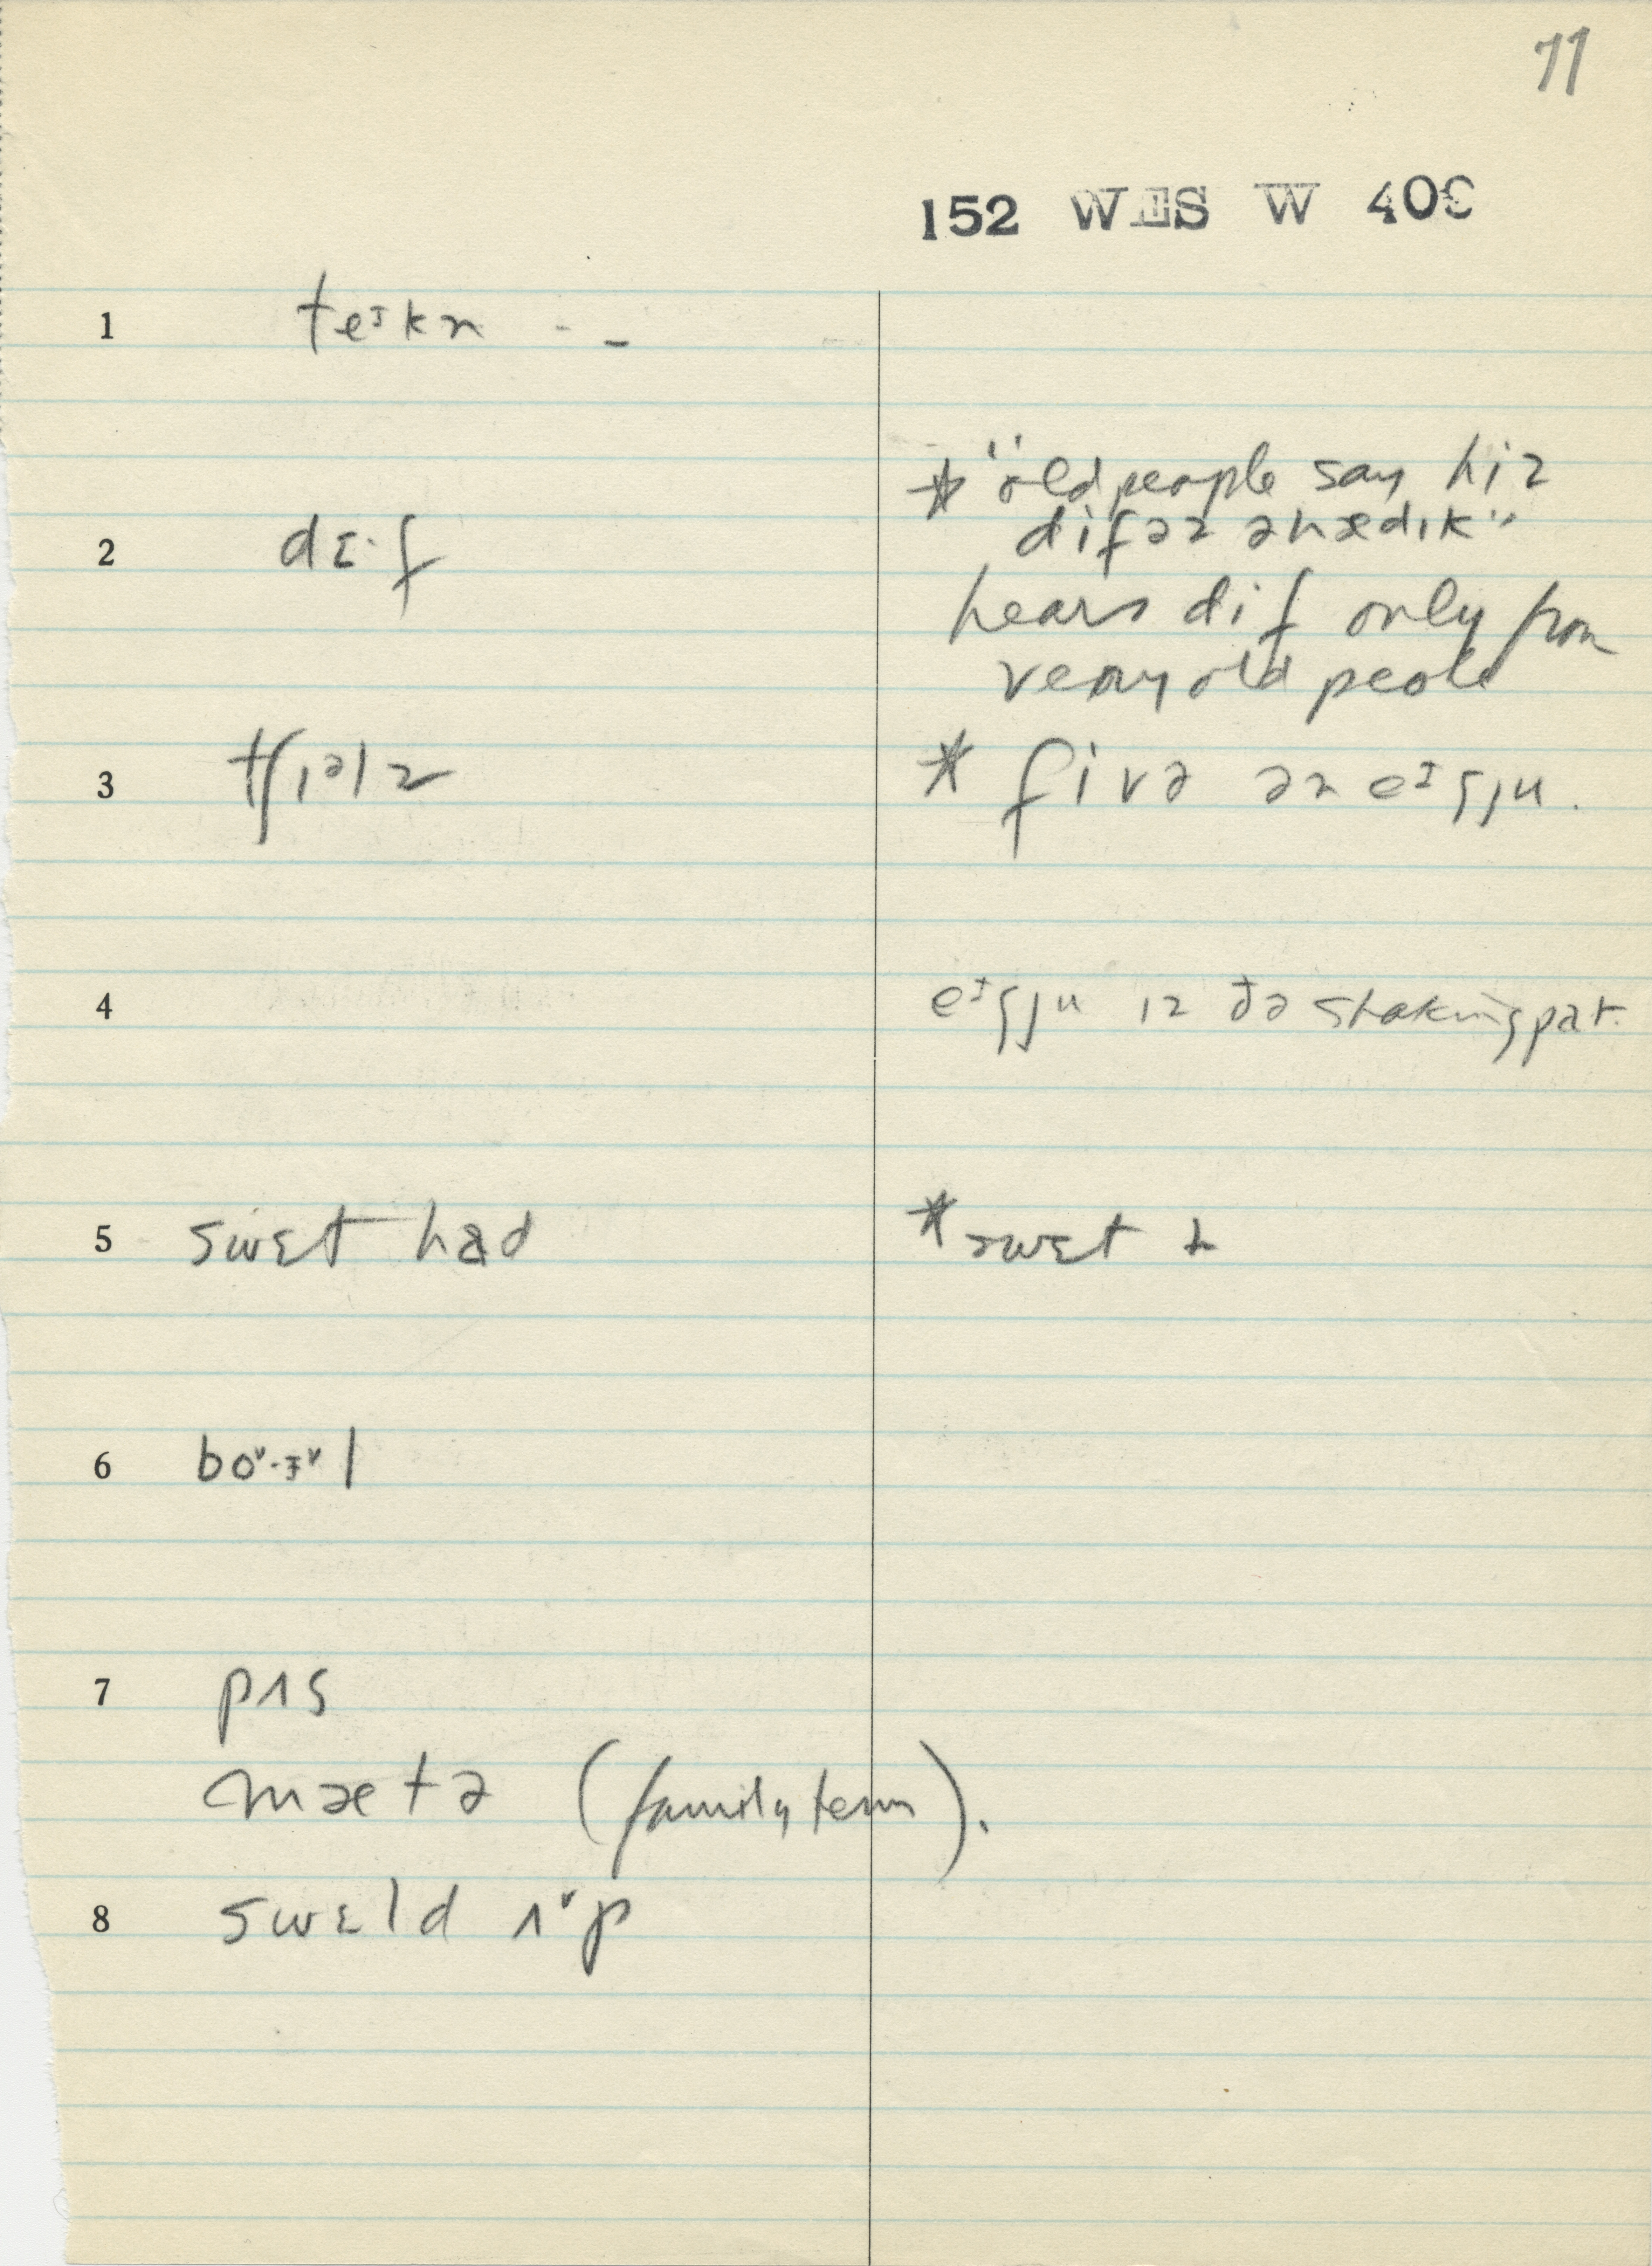 77
152 WES W 409
1 teᶦkn - -
2 dɛ·f
* "old people say hiz
difəz ənædɪk"
hears dif only from
very old people
3 tʃɪᵊlz
* fivə ən eᶦgju.
4 eᶦgju ɪz ðə shaking pat.
5 swɛt had
* swɛt
6
7 pʌs
mætə (family term).
8 swɛld ʌᵛp